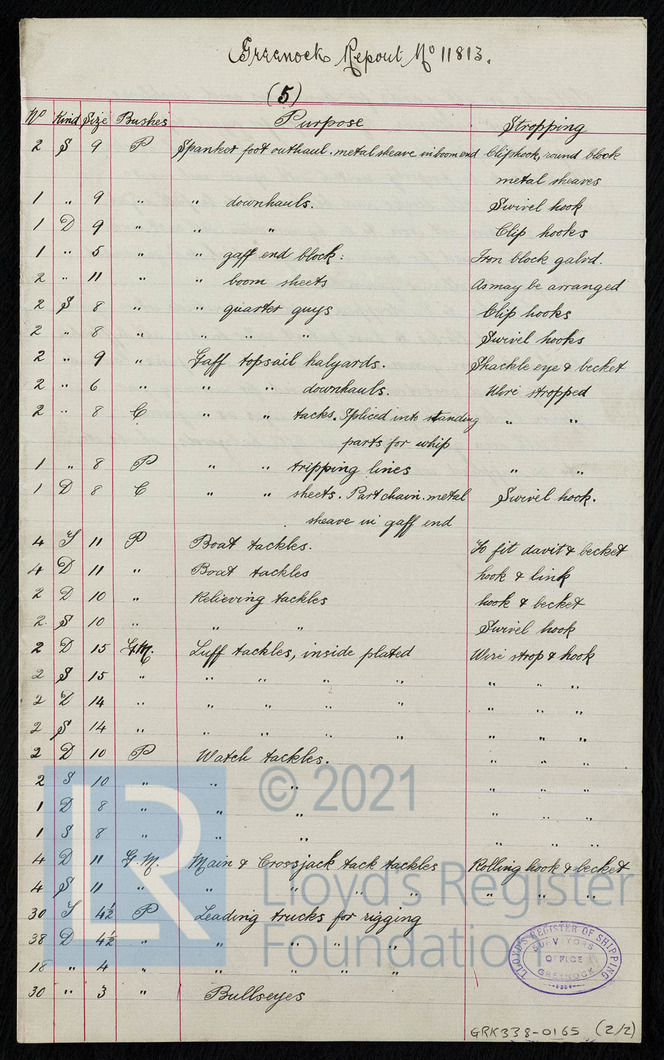 Greenock Report No 11813.
(5)
No Kind Size Bushes Purpose Stropping
2 S 9 P Spanker foot outhaul. metal sheave in boom end Cliphook, round block
metal sheaves
1 " 9 " " downhauls. Swivel hook
1 D 9 " " " Clip hooks
1 " 5 " " gaff end block: Iron block galvd.
2 " 11 " " boom sheets As may be arranged
2 S 8 " " quarter guys Clip hooks
2 " 8 " " " " Swivel hooks
2 " 9 " Gaff topsail halyards. Shackle eye & becket
2 " 6 " " " downhauls. Wire stropped
2 " 8 C " " tacks. Spliced into standing " "
parts for whip
1 " 8 P " " tripping lines " "
1 D 8 C " " sheets. Part chain. metal Swivel hook.
sheave in gaff end
4 S 11 P Boat tackles. To fit davit & becket
4 D 11 " Boat tackles hook & link
2 D 10 " Relieving tackles hook & becket
2 S 10 " " " Swivel hook
2 D 15 G.M. Luff tackles, inside plated Wire strop & hook
2 S 15 " " " " " " " "
2 D 14 " " " " " " " "
2 S 14 " " " " " " " "
2 D 10 P Watch tackles. " " "
2 S 10 " " " " " "
1 D 8 " " " " " "
1 S 8 " " " " " "
4 D 11 G.M. Main & Crossjack tack tackles Rolling hook & becket
4 S 11 " " " " " " " "
30 S 4½ P Leading trucks for rigging
38 D 4½ " " " " "
18 " 4 " " " " "
30 " 3 " Bullseyes
LLOYD'S REGISTER OF SHIPPING
SURVEYORS
OFFICE
GREENOCK
GRK338-0165 (2/2)
LR
© 2021
Lloyd's Register
Foundation